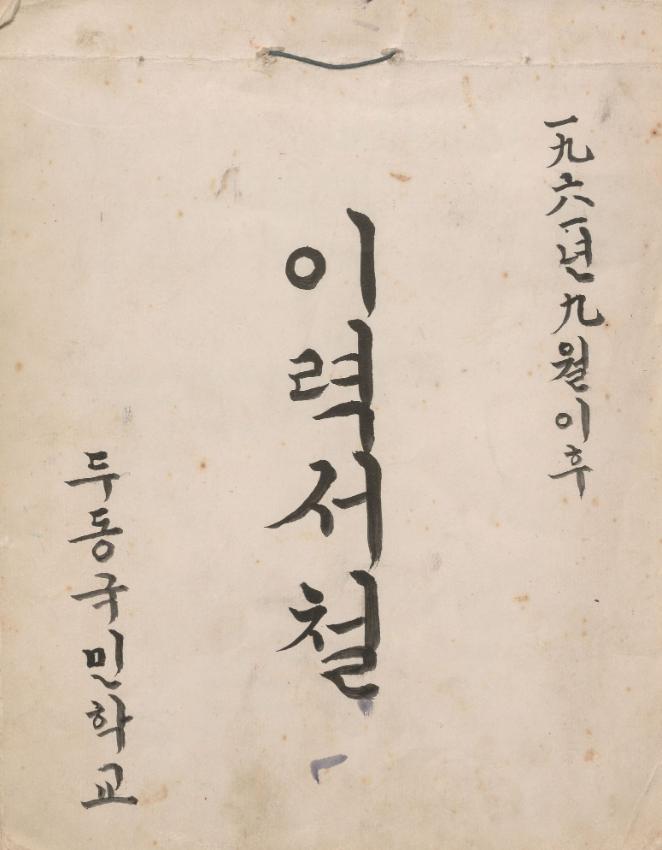 一九六一년九월이후
이력서철
두동국민학교